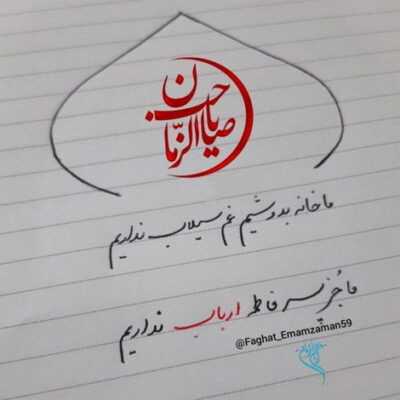 یا صاحب الزمان
ما خانه بدوشیم غم سیلاب نداریم
ما جُز پسر فاطمه ارباب نداریم
@Faghat_Emamzaman59